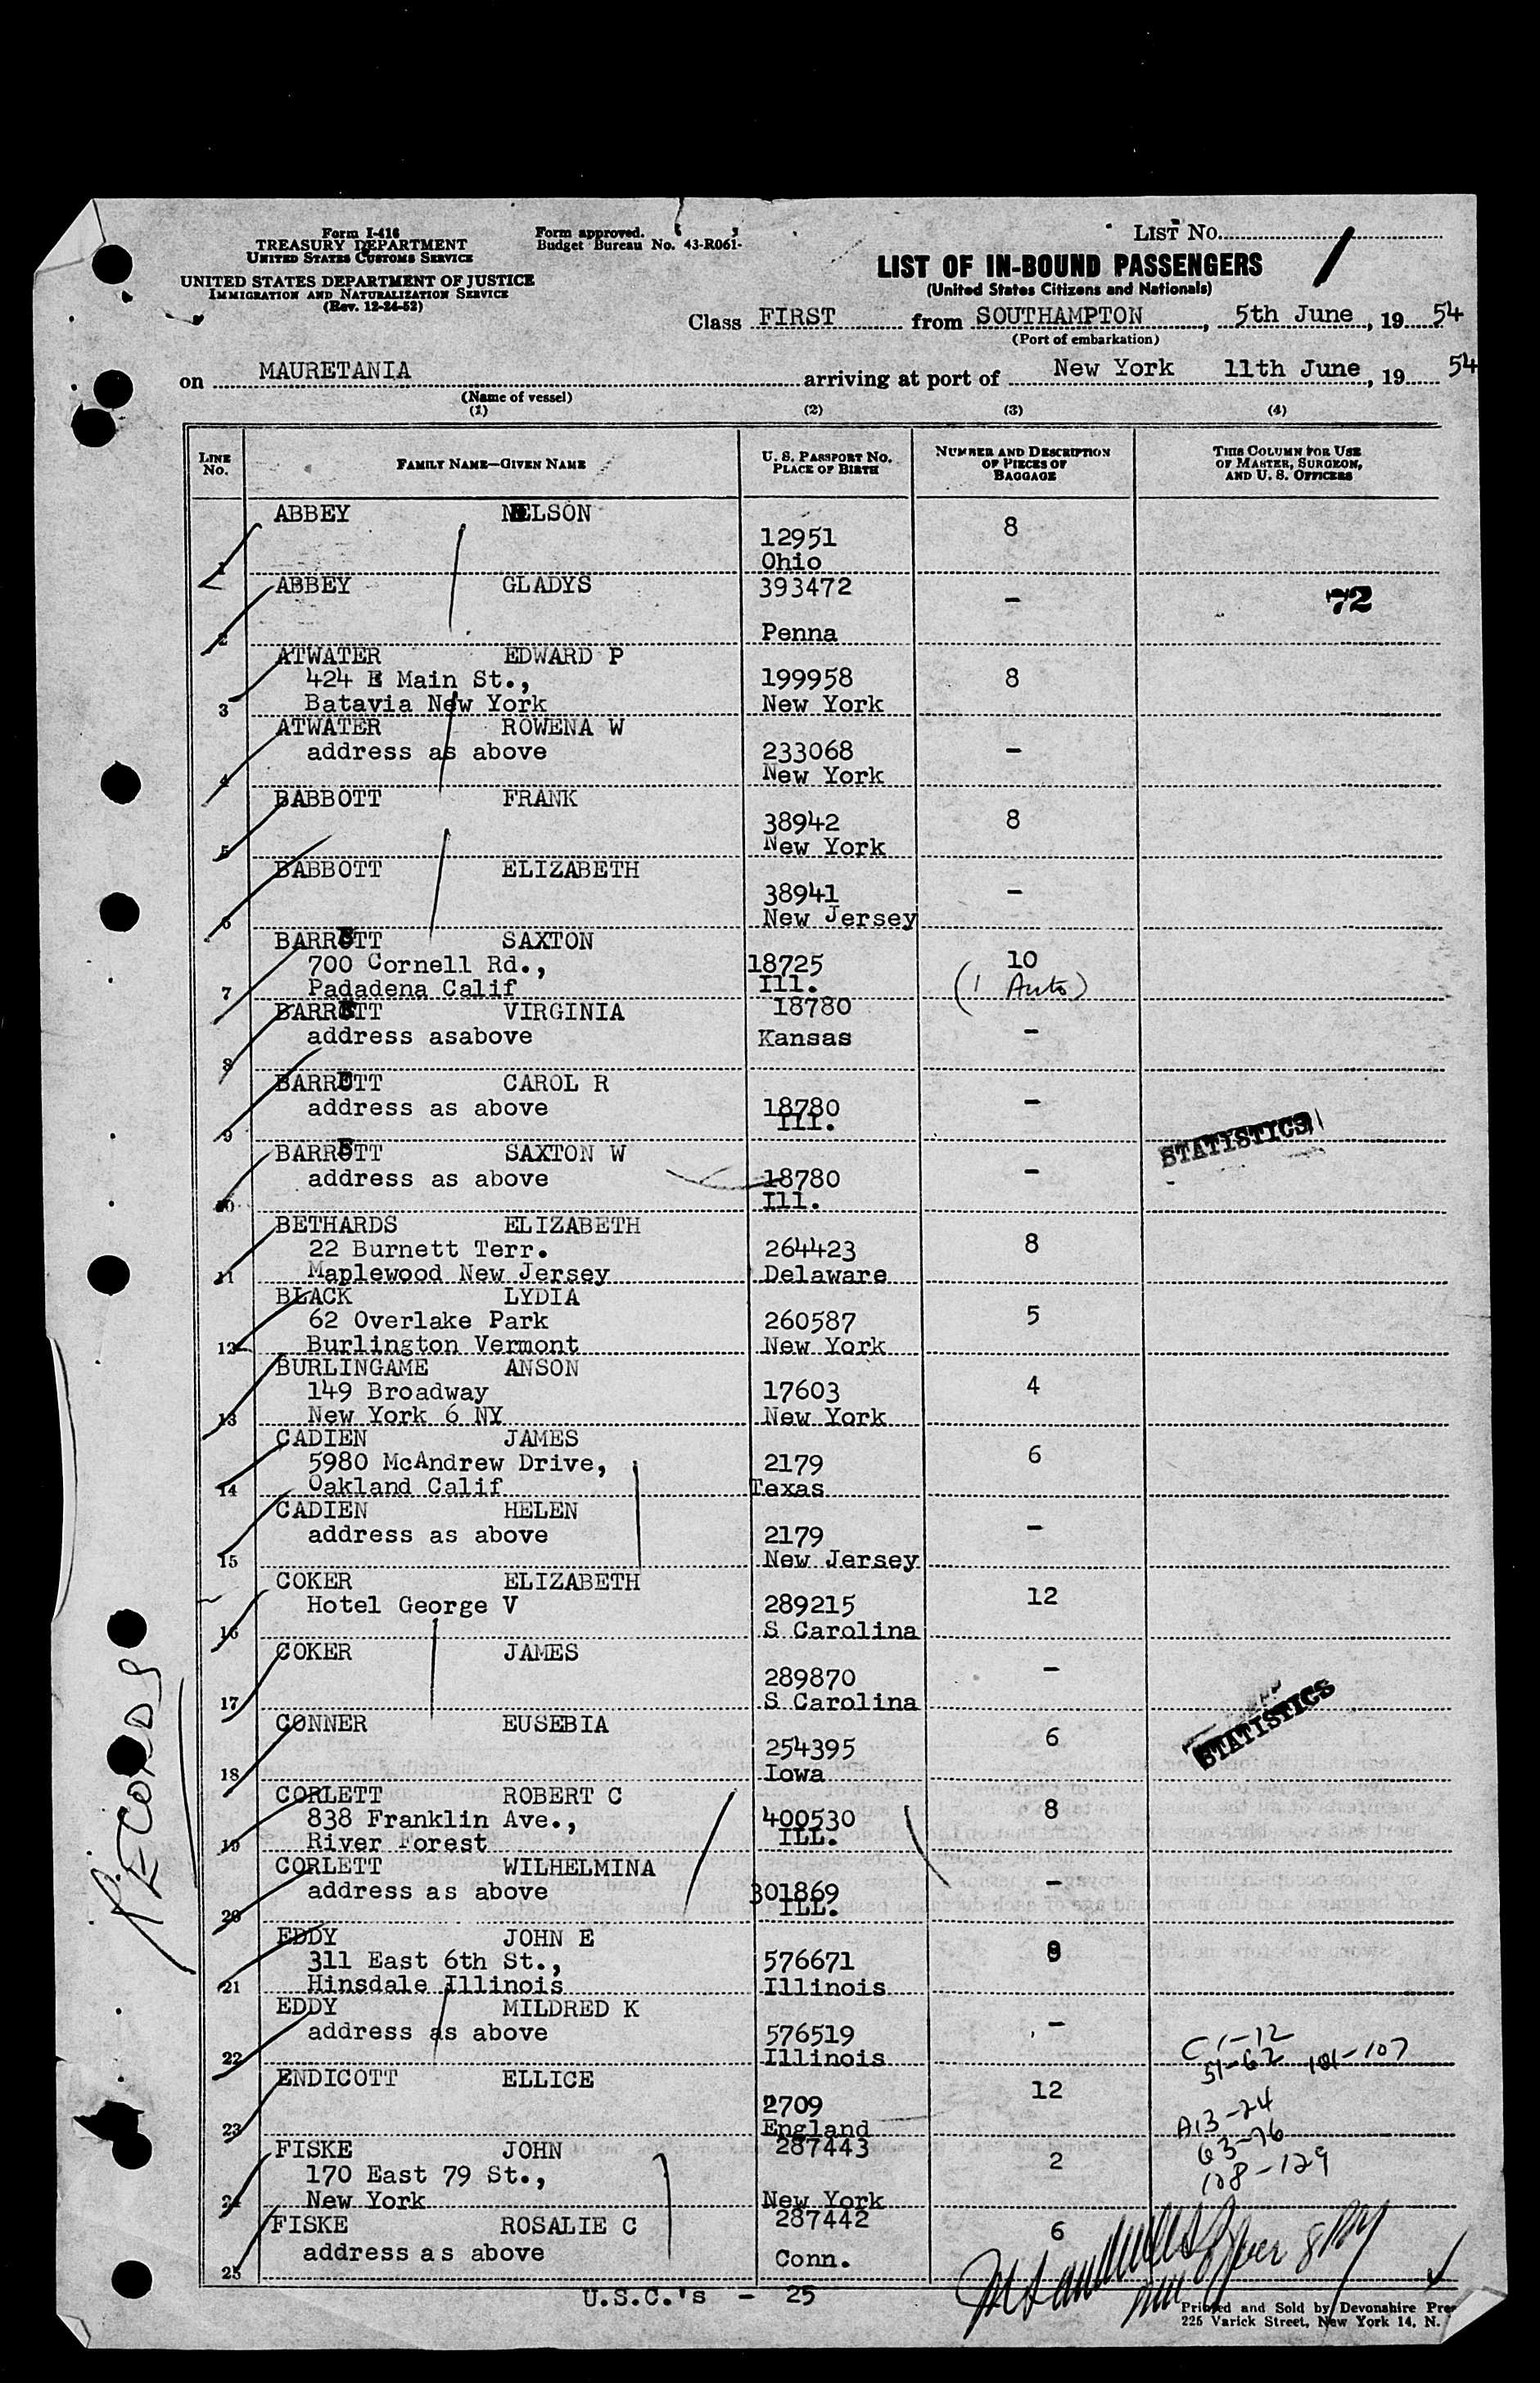 Form I-416
TREASURY DEPARTMENT
UNITED STATES CUSTOMS SERVICE
UNITED STATES DEPARTMENT OF JUSTICE
IMMIGRATION AND NATURALIZATION SERVICE
(Rev. 12-24-52)
Form approved.
Budget Bureau No. 43-R061-
LIST No. 1
LIST OF IN-BOUND PASSENGERS
(United States Citizens and Nationals)
Class FIRST from SOUTHAMPTON, 5th June, 19 54
(Port of embarkation)
on MAURETANIA arriving at port of New York 11th June, 19 54
(Name of vessel)
(1) (2) (3) (4)
LINE No. FAMILY NAME—GIVEN NAME U. S. PASSPORT No. PLACE OF BIRTH NUMBER AND DESCRIPTION OF PIECES OF BAGGAGE THIS COLUMN FOR USE OF MASTER, SURGEON, AND U. S. OFFICERS
ABBEY NELSON
12951 8
1 Ohio
ABBEY GLADYS 393472
- 72
2 Penna
ATWATER EDWARD P
424 E Main St., 199958 8
3 Batavia New York New York
ATWATER ROWENA W
address as above 233068 -
4 New York
BABBOTT FRANK
38942 8
5 New York
BABBOTT ELIZABETH
38941 -
6 New Jersey
BARRETT SAXTON
700 Cornell Rd., 18725 10
7 Padadena Calif Ill. (1 Auto)
BARRETT VIRGINIA 18780
address asabove Kansas -
8
BARRETT CAROL R
address as above 18780 -
9 Ill. STATISTICS
BARRETT SAXTON W
address as above 18780 -
10 Ill.
BETHARDS ELIZABETH
22 Burnett Terr. 264423 8
11 Maplewood New Jersey Delaware
BLACK LYDIA
62 Overlake Park 260587 5
12 Burlington Vermont New York
BURLINGAME ANSON
149 Broadway 17603 4
13 New York 6 NY New York
CADIEN JAMES
5980 McAndrew Drive, 2179 6
14 Oakland Calif Texas
CADIEN HELEN
address as above 2179 -
15 New Jersey
COKER ELIZABETH
Hotel George V 289215 12
16 S Carolina
COKER JAMES
289870 -
17 S Carolina
CONNER EUSEBIA STATISTICS
254395 6
18 Iowa
CORLETT ROBERT C
838 Franklin Ave., 400530 8
19 River Forest ILL.
CORLETT WILHELMINA
address as above 301869 -
20 ILL.
EDDY JOHN E
311 East 6th St., 576671
21 Hinsdale Illinois Illinois
EDDY MILDRED K
address as above 576519 -
22 Illinois C 1-12
51-62 101-107
ENDICOTT ELLICE
2709 12
23 England A13-24
FISKE JOHN 287443 63-76
170 East 79 St., 2 108-129
24 New York New York
FISKE ROSALIE C 287442
address as above Conn. 6
25
U.S.C.'s - 25
RECORDS
Printed and Sold by Devonshire Pre
225 Varick Street, New York 14, N.